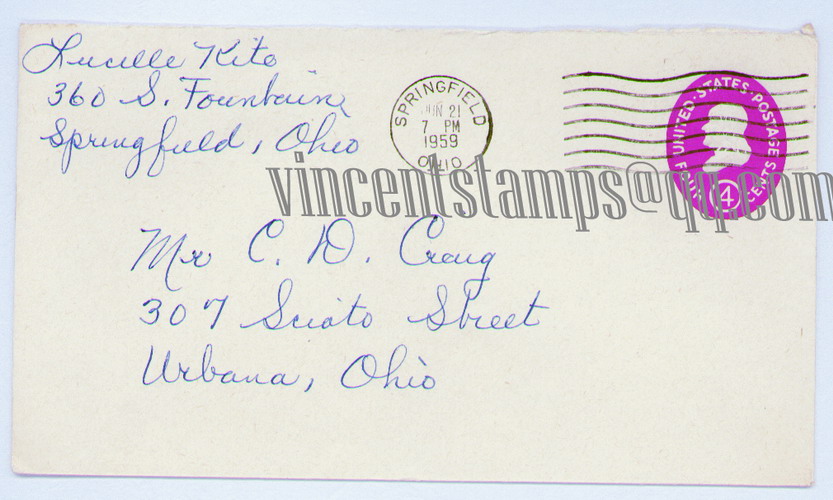 Lucille Kite
360 S. Fountain
Springfield, Ohio
SPRINGFIELD
JUN 21
7 PM
1959
OHIO
UNITED·STATES·POSTAGE
CENTS
4
vincentstamps@qq.com
Mr C. D. Craig
307 Scioto Street
Urbana, Ohio